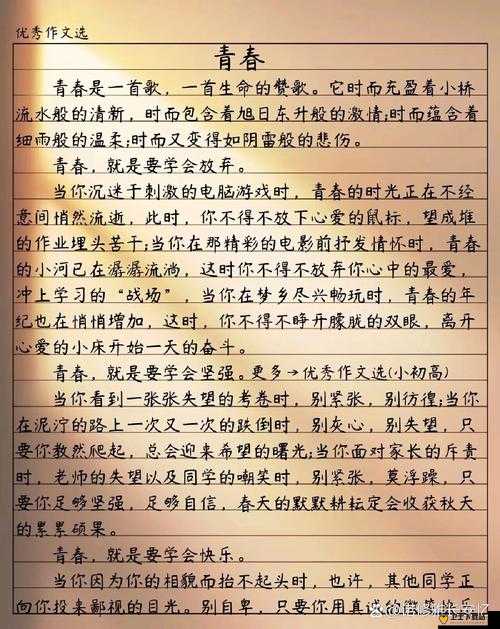 优秀作文选
青春
青春是一首歌，一首生命的赞歌。它时而充盈着小桥
流水般的清新，时而包含着旭日东升般的激情;时而蕴含着
细雨般的温柔;时而又变得如阴雷般的悲伤。
青春，就是要学会放弃。
当你沉迷于刺激的电脑游戏时，青春的时光正在不经
意间悄然流逝，此时，你不得不放下心爱的鼠标，望成堆
的作业埋头苦干;当你在那精彩的电影前抒发情怀时，青春
的小河已在潺潺流淌，这时你不得不放弃你心中的最爱，
冲上学习的“战场”，当你在梦乡尽兴畅玩时，青春的年
纪也在悄悄增加，这时，你不得不睁开朦胧的双眼，离开
心爱的小床开始一天的奋斗。
青春，就是要学会坚强。更多→优秀作文选(小初高)
当你看到一张张失望的考卷时，别紧张，别彷徨;当你
在泥泞的路上一次又一次的跌倒时，别灰心，别失望，只
要你敢然爬起，总会迎来希望的曙光;当你面对家长的斥责
时，老师的失望以及同学的嘲笑时，别紧张，莫浮躁，只
要你足够坚强，足够自信，春天的默默耕耘定会收获秋天
的累累硕果。
青春，就是要学会快乐。
当你因为你的相貌而抬不起头时，也许，其他同学正
向你投来鄙视的目光。别自卑，只要你用真诚的微笑